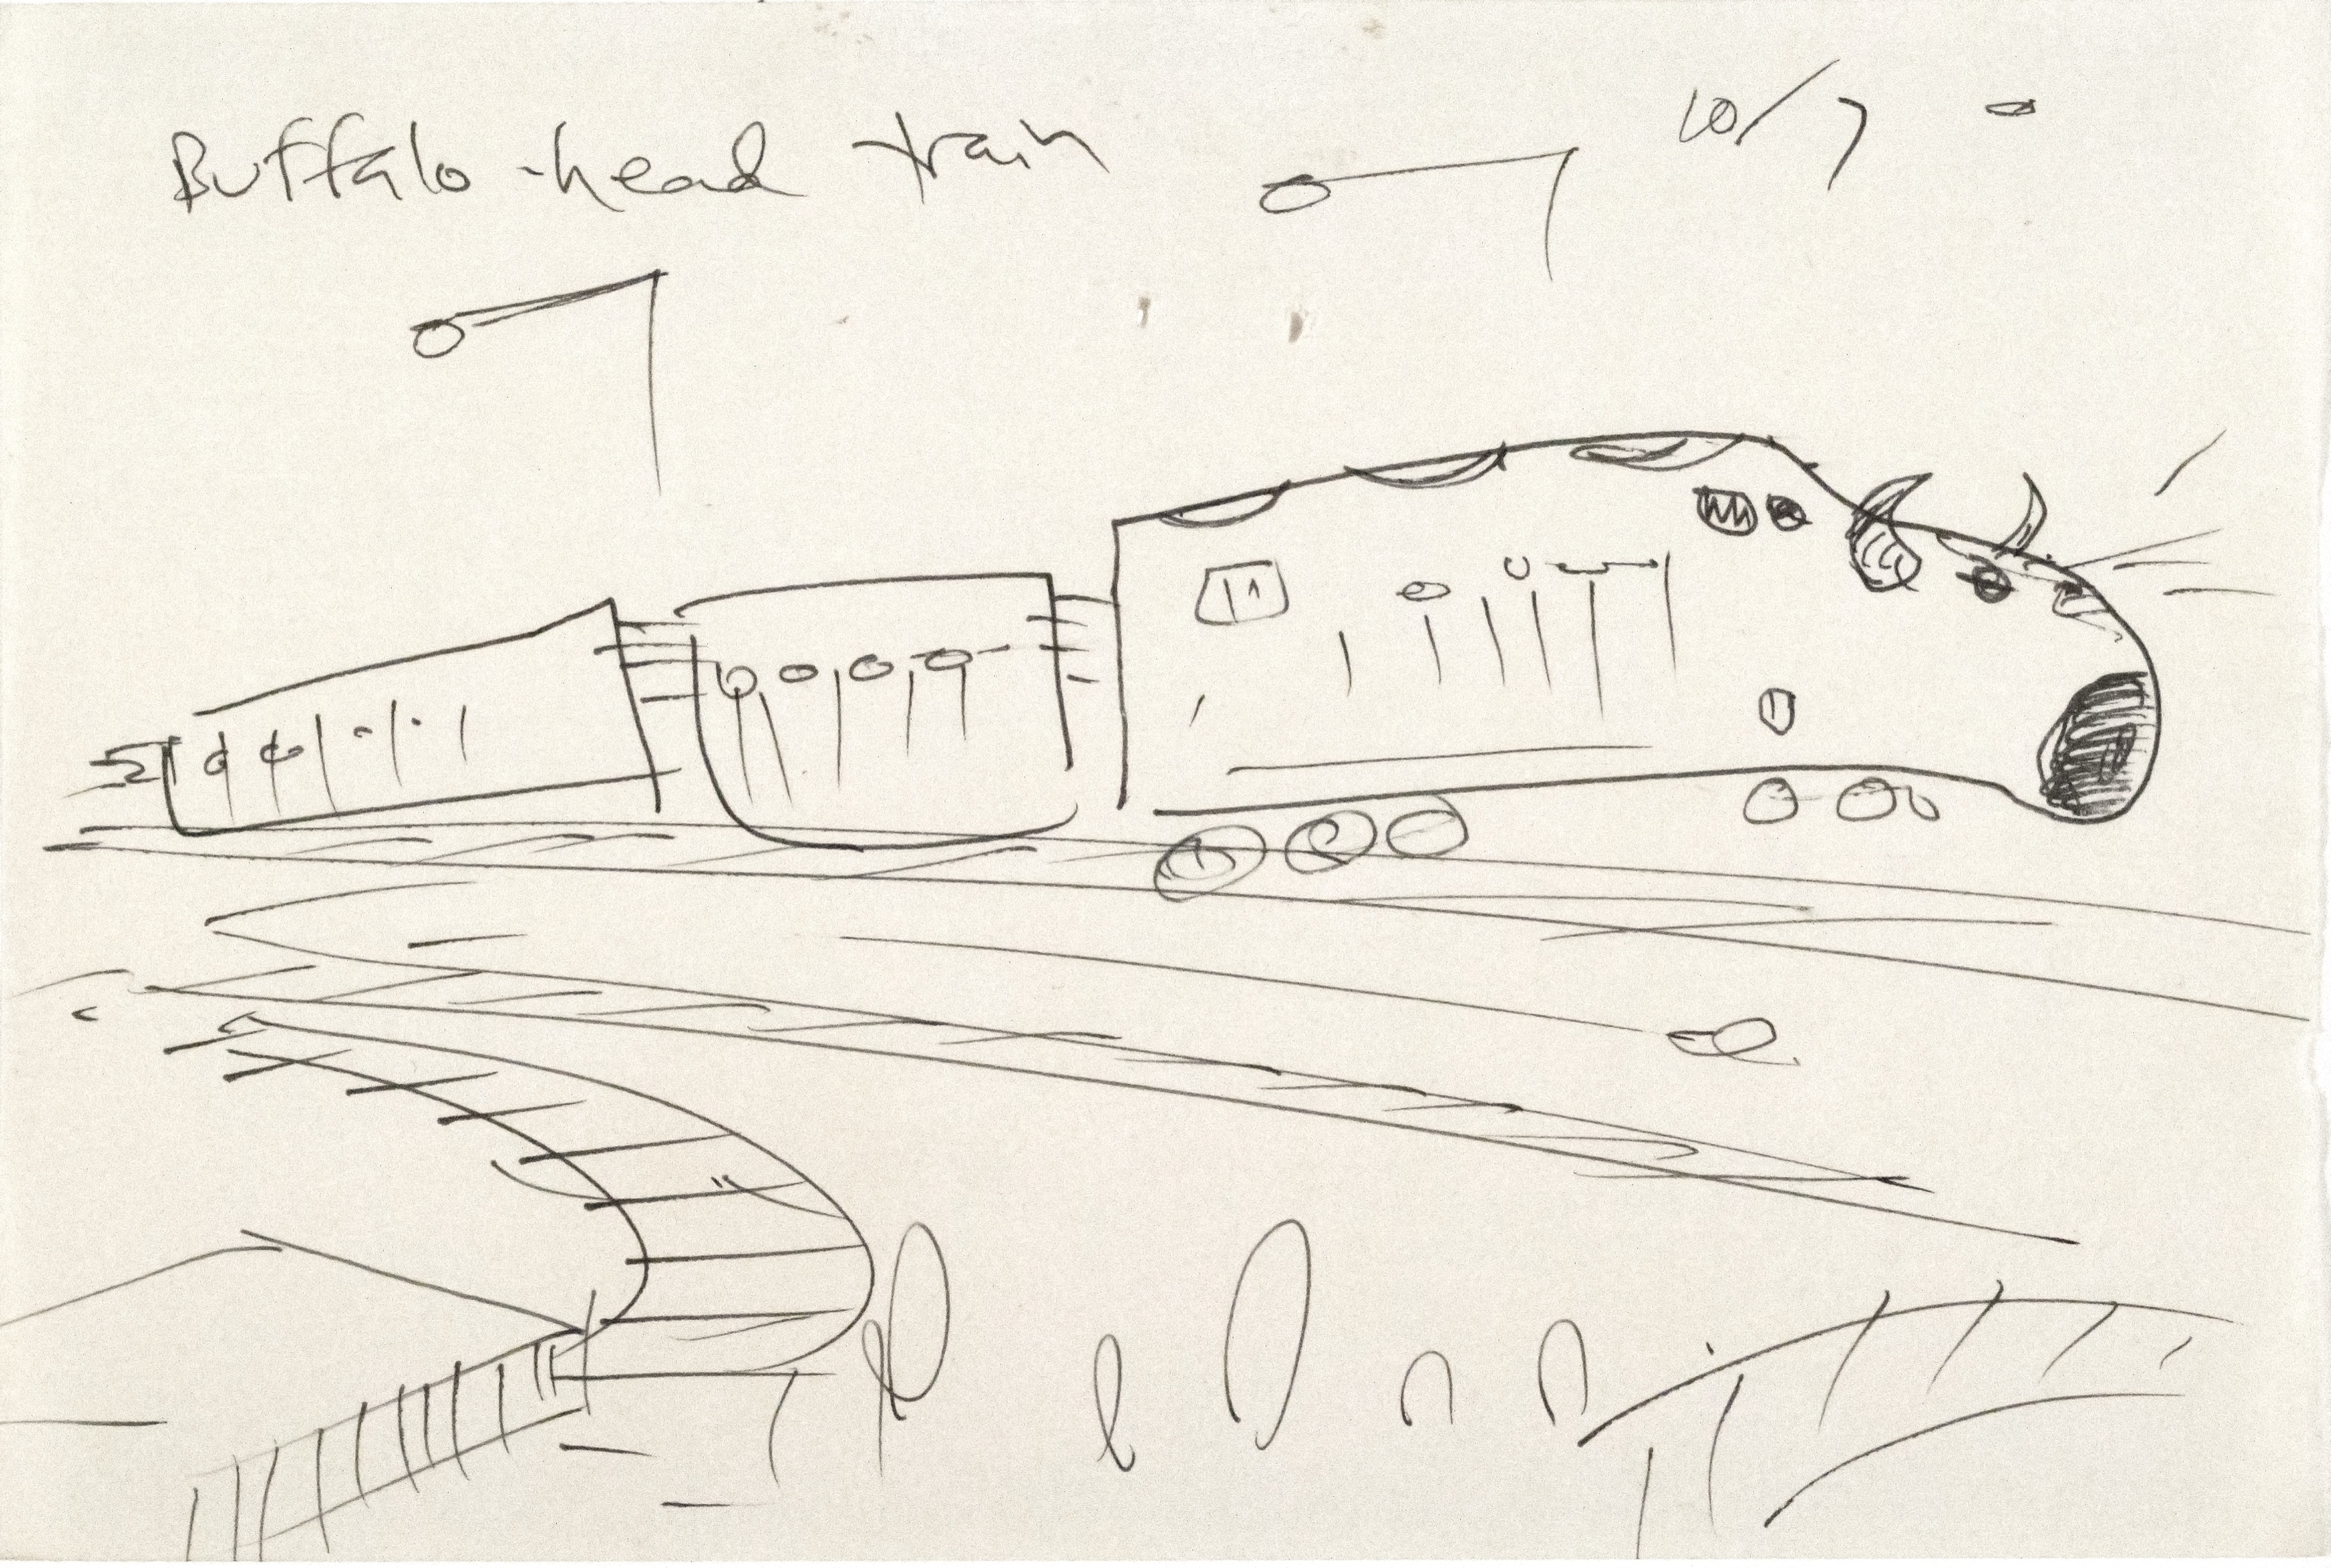 Buffalo-head train
10/7